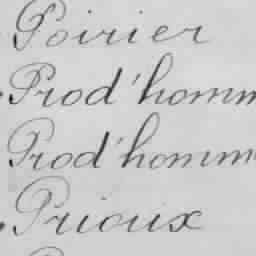 Poirier
Prod'homm
Prod'homm
Prioux